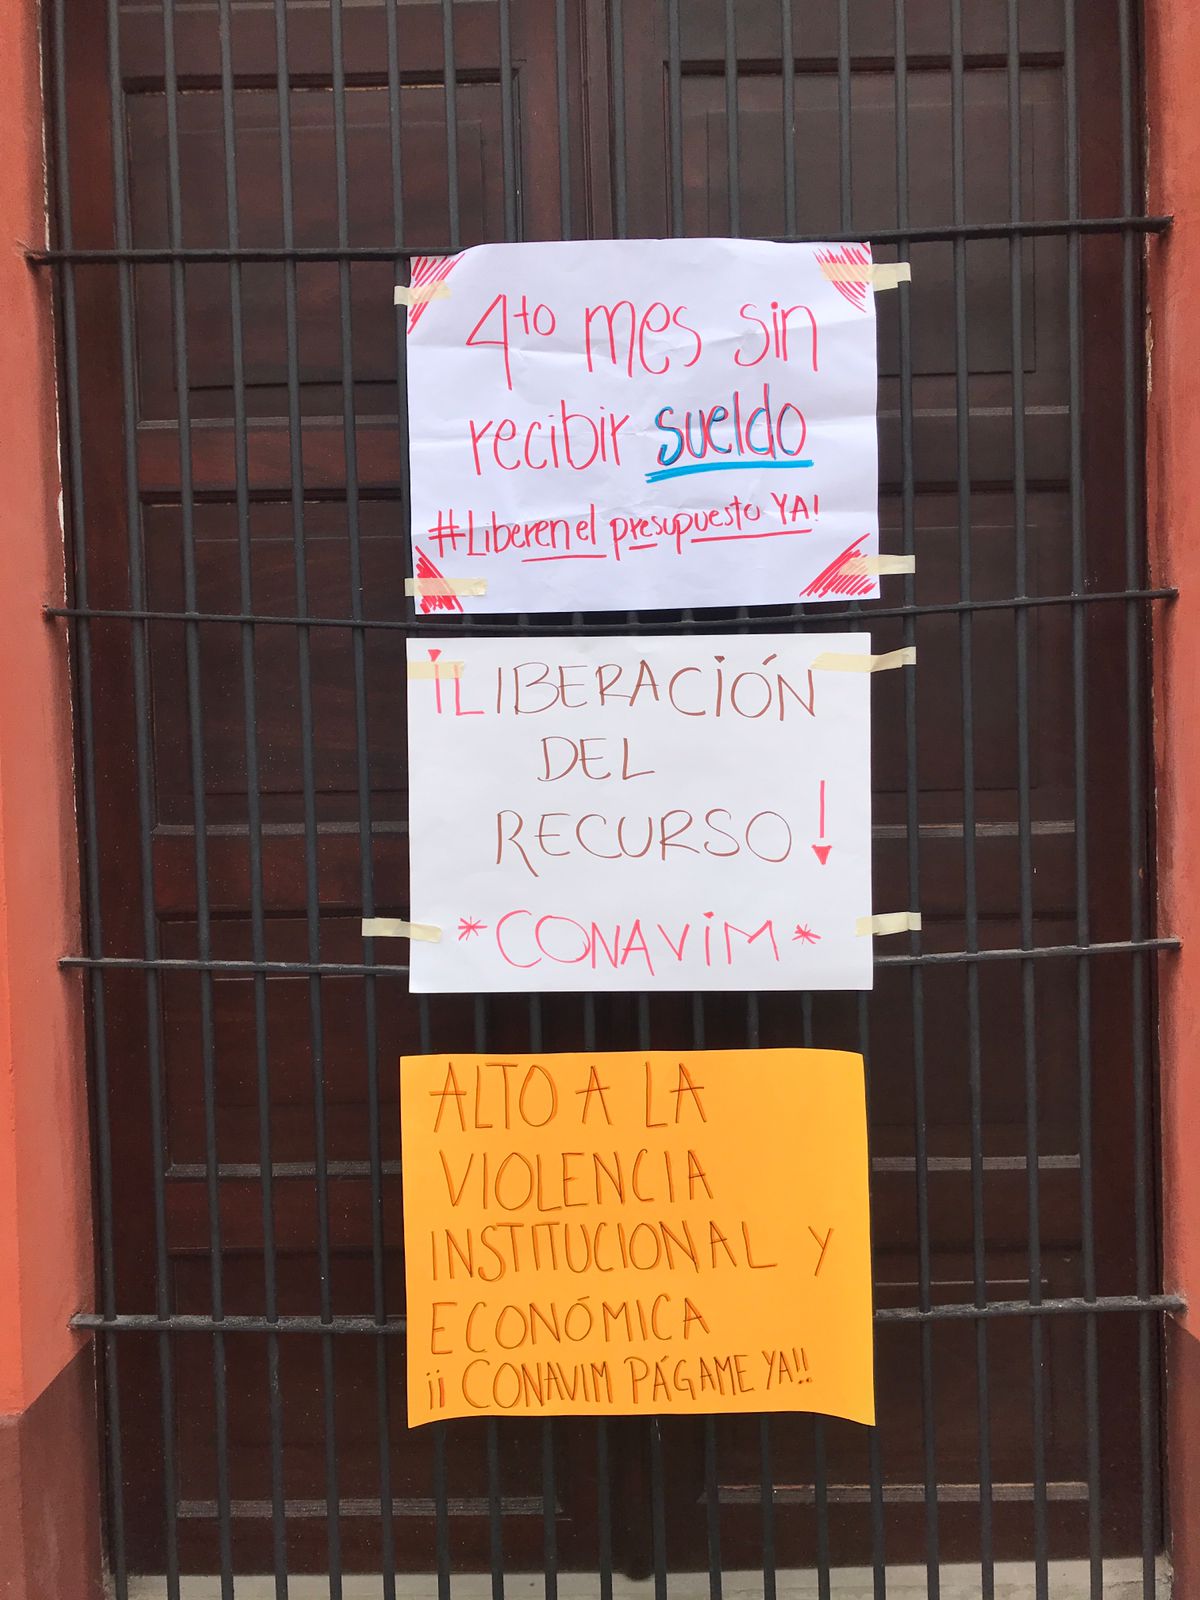 4to mes sin
recibir sueldo
#Liberen el presupuesto YA!
¡LIBERACIÓN
DEL
RECURSO!
*CONAVIM*
ALTO A LA
VIOLENCIA
INSTITUCIONAL Y
ECONÓMICA
¡¡CONAVIM PÁGAME YA!!